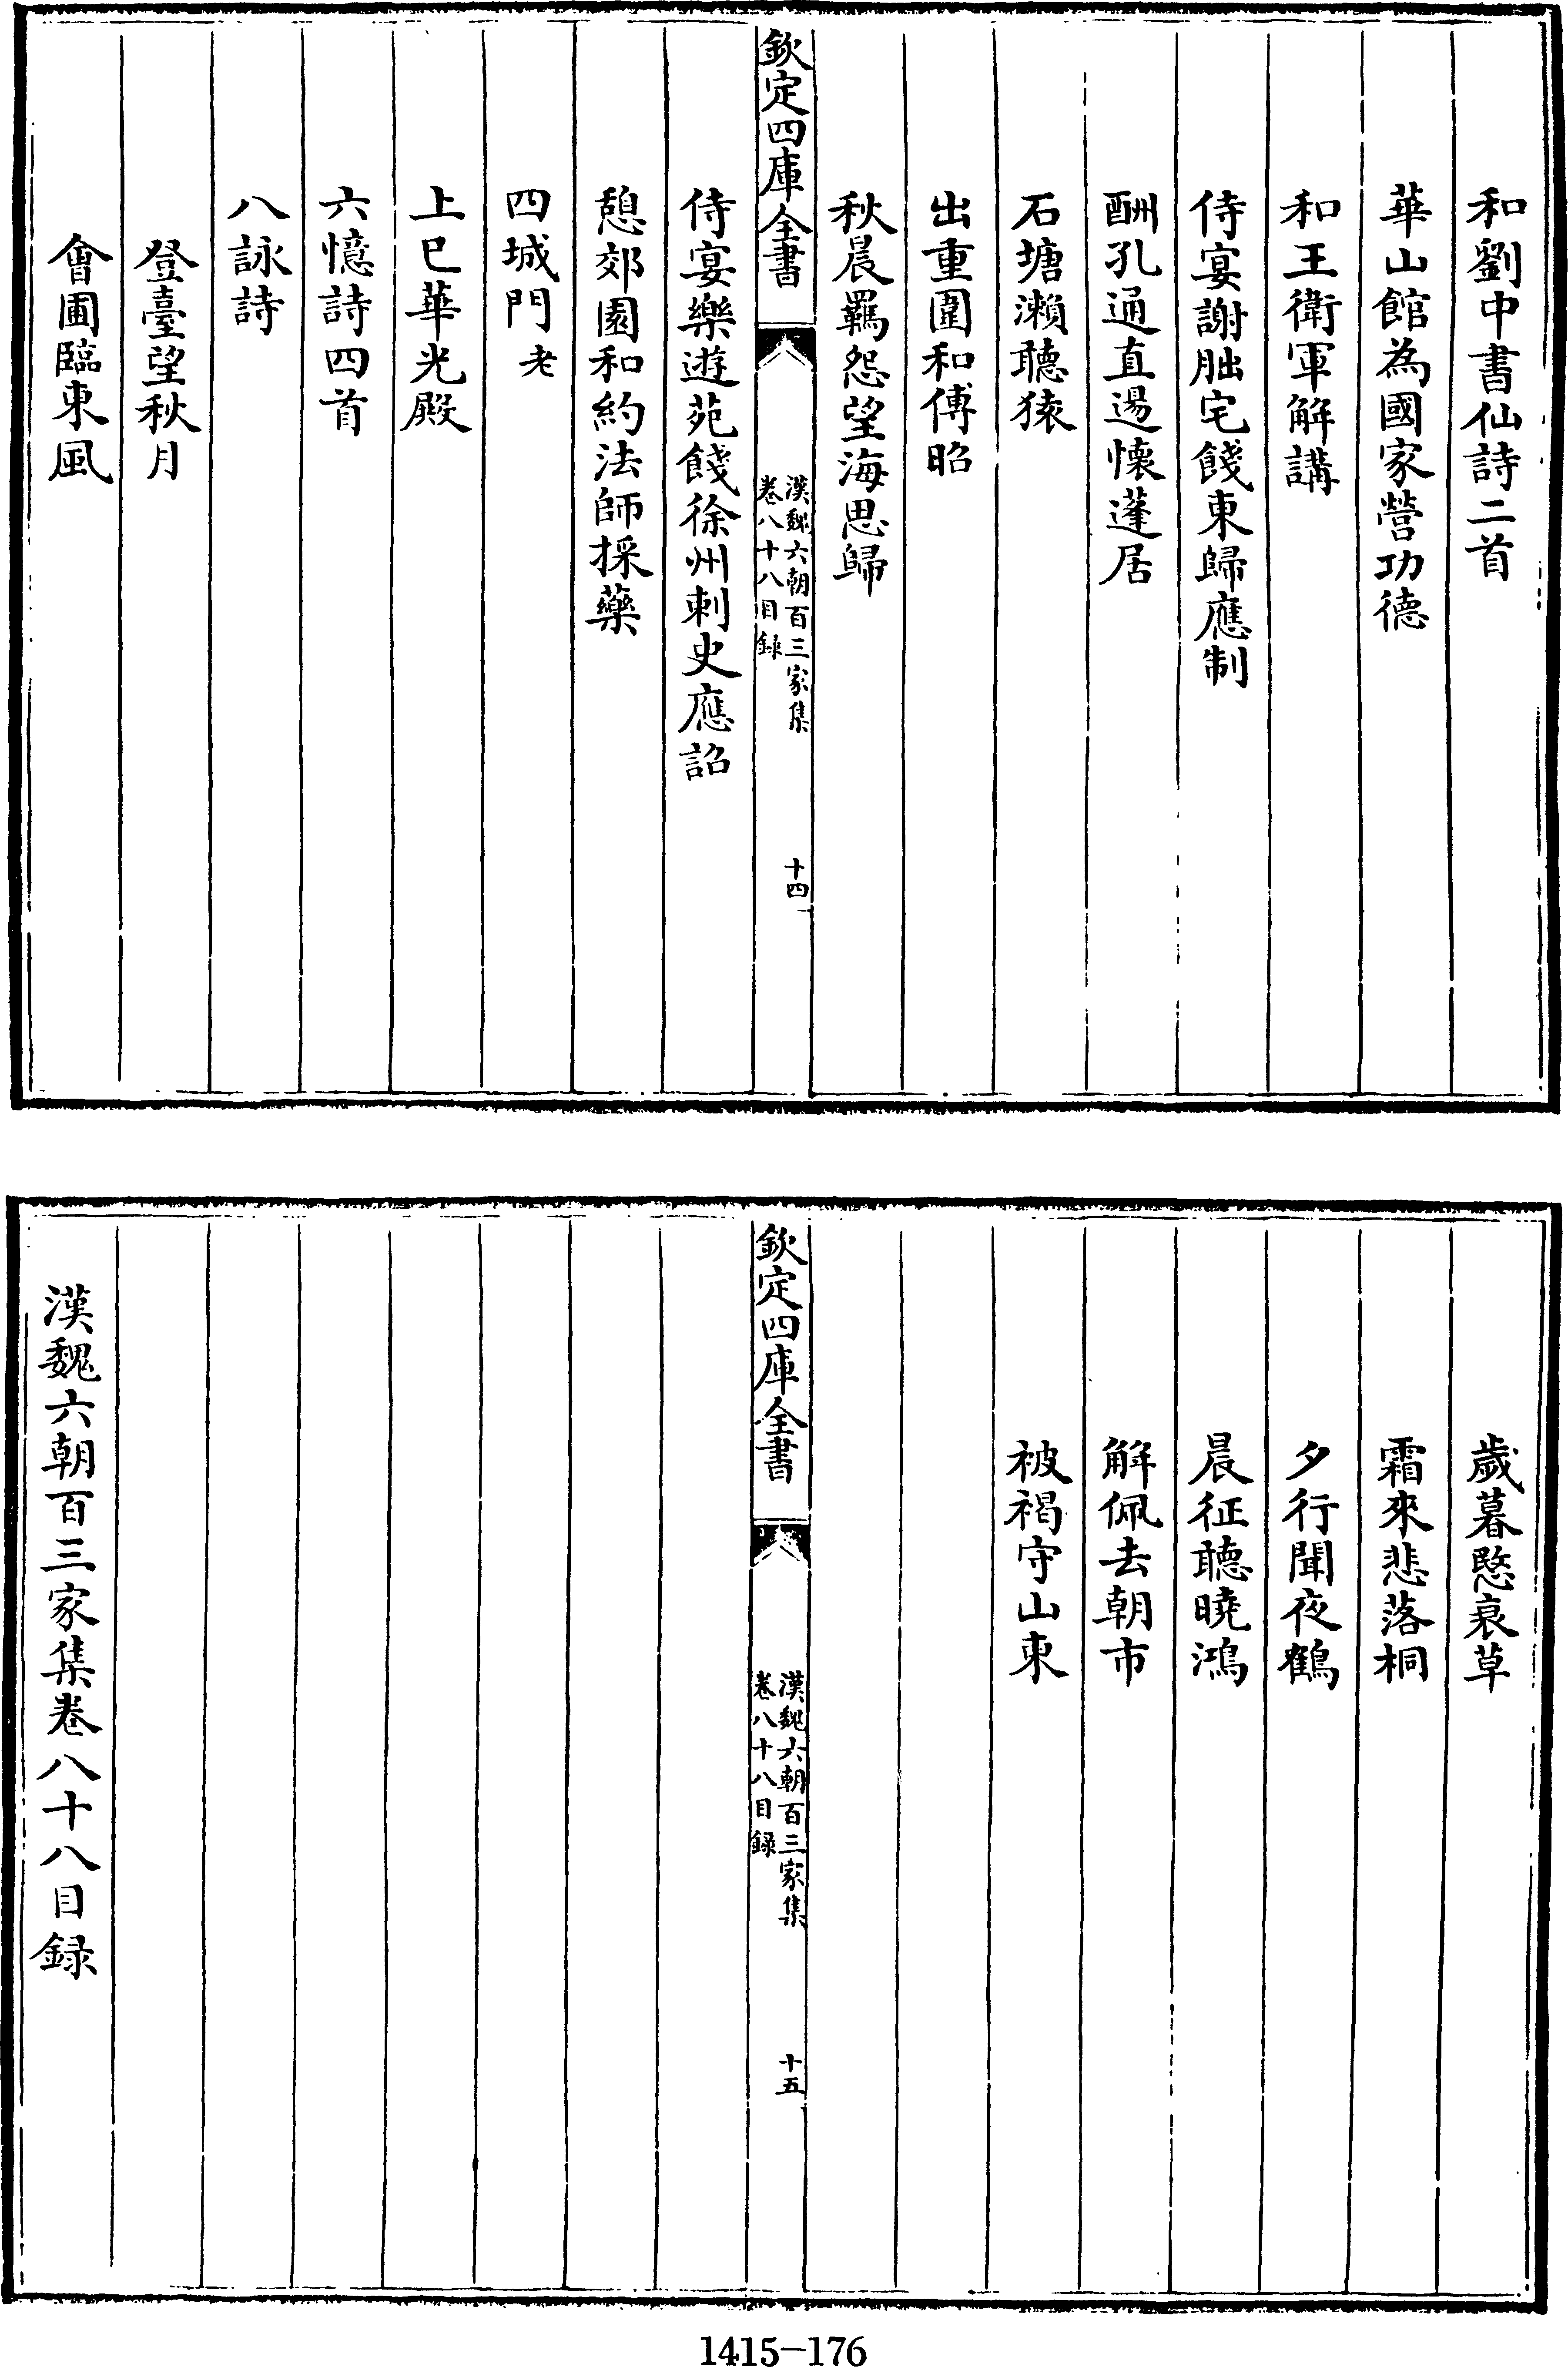 和劉中書仙詩二首
華山館為國家營功德
和王衛軍解講
侍宴謝朏宅餞東歸應制
酬孔通直逷懷蓬居
石塘瀨聽猿
出重圍和傅昭
秋晨羈怨望海思歸
欽定四庫全書
漢魏六朝百三家集
卷八十八目録
十四
侍宴樂遊苑餞徐州刺史應詔
憩郊園和約法師採藥
四城門老
上巳華光殿
六憶詩四首
八詠詩
登臺望秋月
會圃臨東風
歲暮愍衰草
霜來悲落桐
夕行聞夜鶴
晨征聽曉鴻
解佩去朝市
被褐守山東
欽定四庫全書
漢魏六朝百三家集
卷八十八目録
十五
漢魏六朝百三家集卷八十八目録
1415-176